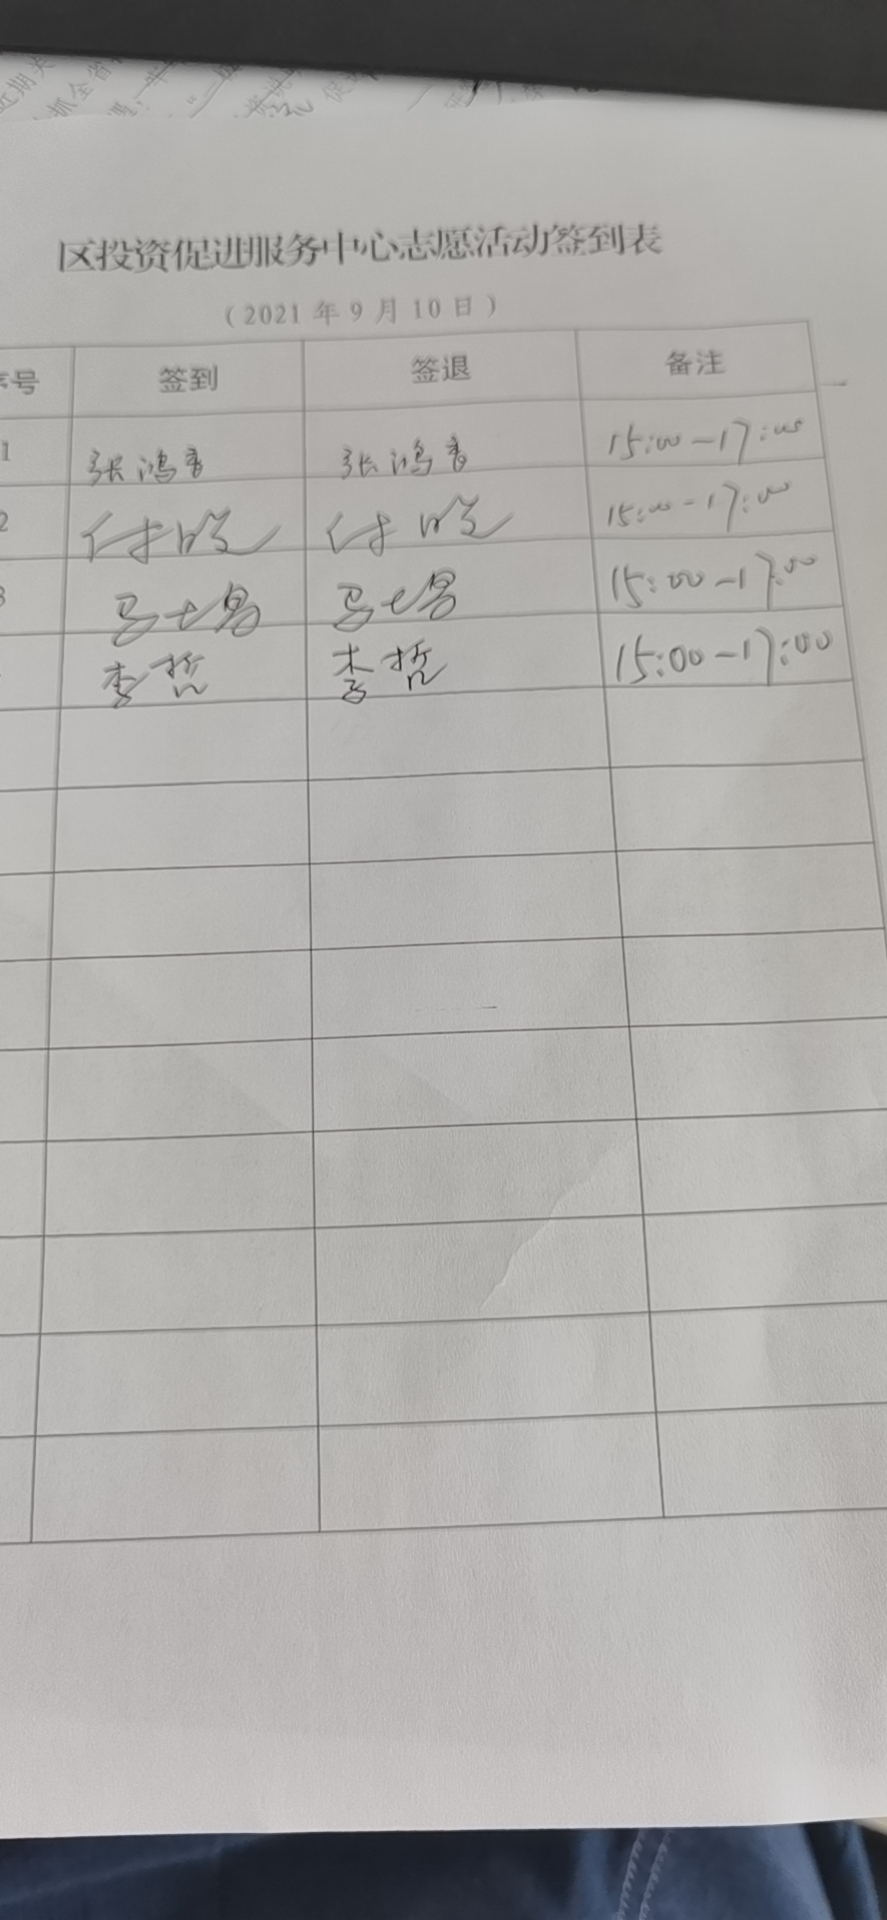 区投资促进服务中心志愿活动签到表
（2021 年 9 月 10 日）
序号 签到 签退 备注
1 张鸿香 张鸿香 15:00-17:00
2 付皓 付皓 15:00-17:00
3 15:00-17:00
李哲 李哲 15:00-17:00